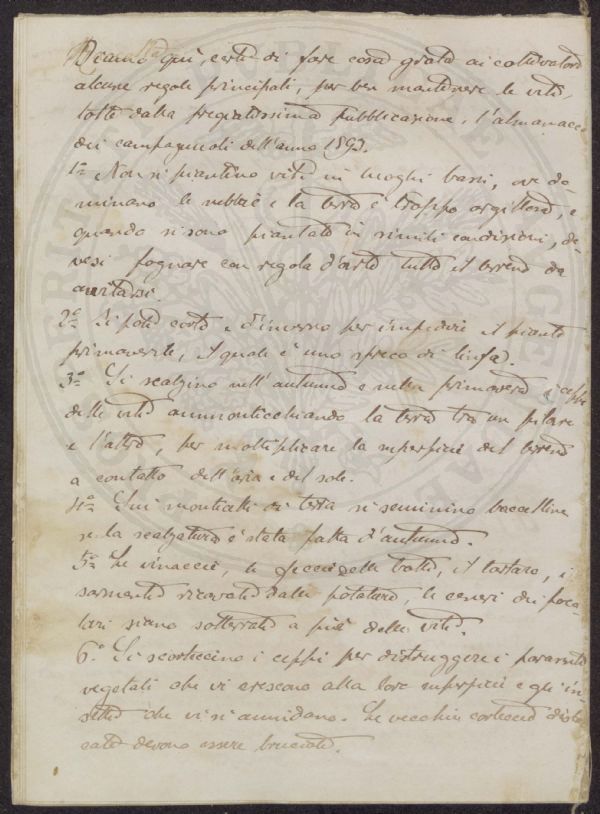 Diamo qui, certi di fare cosa grata ai coltivatori
alcune regole principali, per ben mantenere le viti,
tolte dalla pregiatissima Pubblicazione, l'almanacco
dei campagnuoli dell'anno 1893.
1ª Non si piantino viti in luoghi bassi, ove do-
minano le nebbie e la terra è troppo argillosa, e
quando si sono piantate in simili condizioni, de-
vesi fognare con regola d'arte tutto il terreno da
avvitarsi.
2ª Si poti corto e d'inverno per impedire il pianto
primaverile, il quale è uno spreco di linfa.
3ª Si scalzino nell'autunno e nella primavera i ceppi
delle viti ammonticchiando la terra tra un filare
e l'altro, per moltiplicare la superficie del terreno
a contatto dell'aria e del sole.
4ª Sui monticelli di terra si seminino baccelline
se la scalzatura è stata fatta d'autunno.
5ª Le vinaccie, le feccie delle botti, il tartaro, i
sarmenti ricavati dalle potature, le ceneri dei foco-
lari siano sotterrate a piè delle viti.
6ª Si scorteccino i ceppi per distruggere i parassiti
vegetali che vi crescono alla loro superficie e gli in-
setti che vi si annidano. Le vecchie corteccie distac-
cate devono essere bruciate.